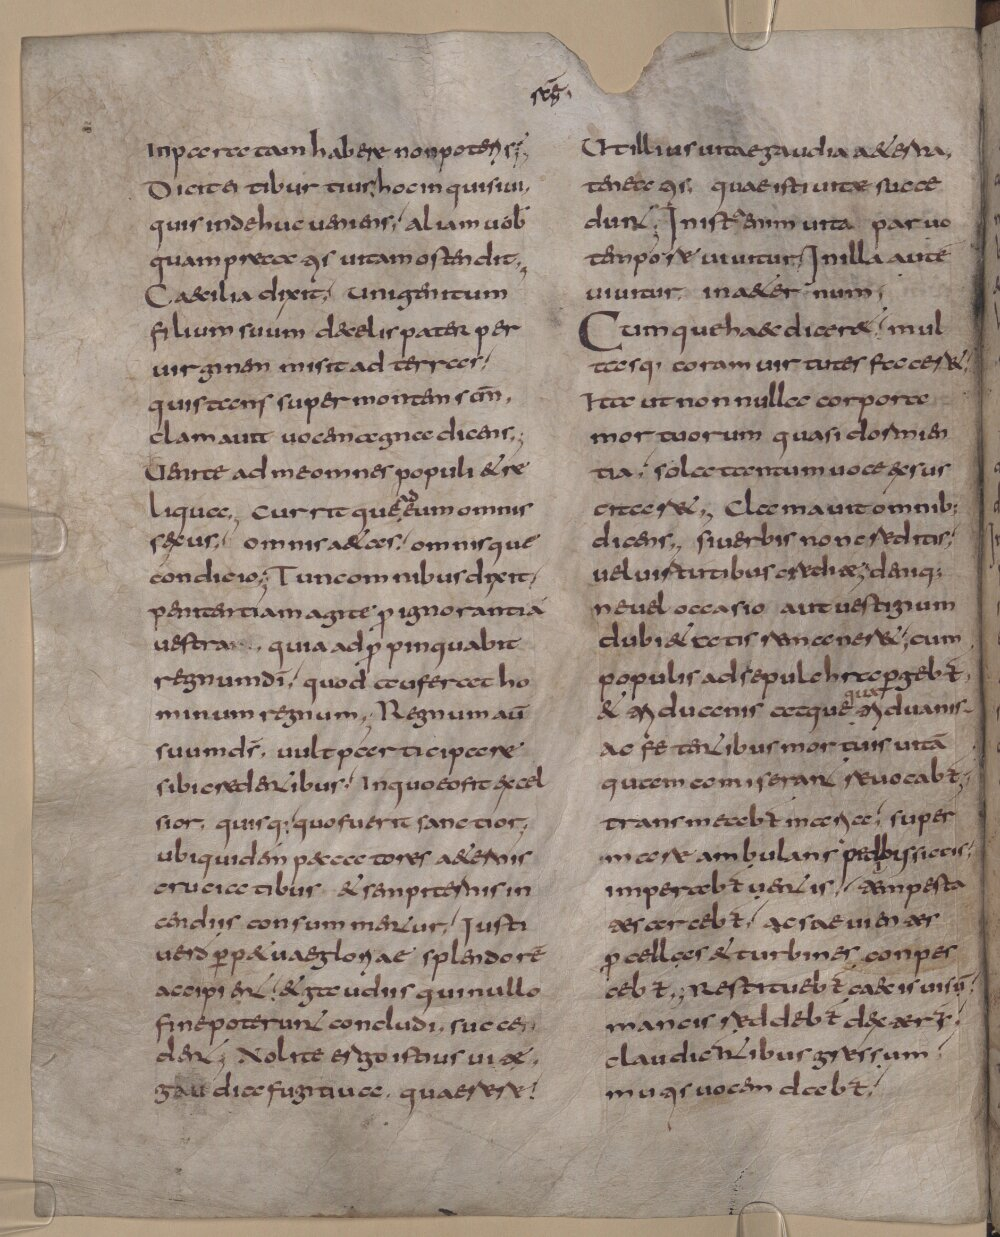 In parte tam habere non potens;
Dicit ei tiburtius; hoc inquisivi,
quis inde huc veniens, aliam vob
quam praeter ns vitam ostendit,
Caecilia dixit, unigenitum
filium suum de celis pater per
virginem misit ad terras,
qui stans super montem scm,
clamavit vocem magna dicens;
Venite ad me omnes populi & re
liqua, currit que ad eum omnis
sexus, omnis aetas, omnisque
condicio; Tunc omnibus dixit,
penitentiam agite p ignorantia
vestra, quia adpropinquabit
regnum di, quod auferat ho
minum regnum, Regnum au
suum ds, vult participare
sibi credentibus, In quo eo fit excel
sior, quisq; quo fuerit sanctior,
ubi quidem peccatores aeternis
cruciatibus & sempiternis in
cendiis consumentur, Justi
vero perpetuae gloriae splendore
accipient, & gaudiis qui nullo
fine poterunt concludi, succe
dent; Nolite ergo istius vitae,
gaudia fugitiva, quaerere!
Ut illius vitae gaudia aeterna,
teneatis, quae isti vitae succe
dunt, In ista enim vita parvo
tempore vivitur, In illa aute
vivitur in aeternum;
Cumque haec diceret, mul
tasq; coram virtutes faceret,
Ita ut non nulla corpora
mortuorum quasi dormien
tia, sola tantum voce exsus
citaret, Clamavit omnib;
dicens, si verbis non creditis,
vel virtutibus credite; denique
ne vel occasio aut vestigium
dubietatis remaneret, cum
populis ad sepulchra pergebat,
& ad ducenis atque ad duanis
quat
ac feteribus mortuis vita
quam comiserant revocabat,
transmeabat maria, super
mare ambulans pedib; siccis,
imperabat ventis, tempesta
tes arcebat, ac saevientes
procellas & turbines, conpes
cebat; Restituebat caecis visu,
mancis reddebat dexteras,
claudicantibus gressum,
mutis vocem dabat,